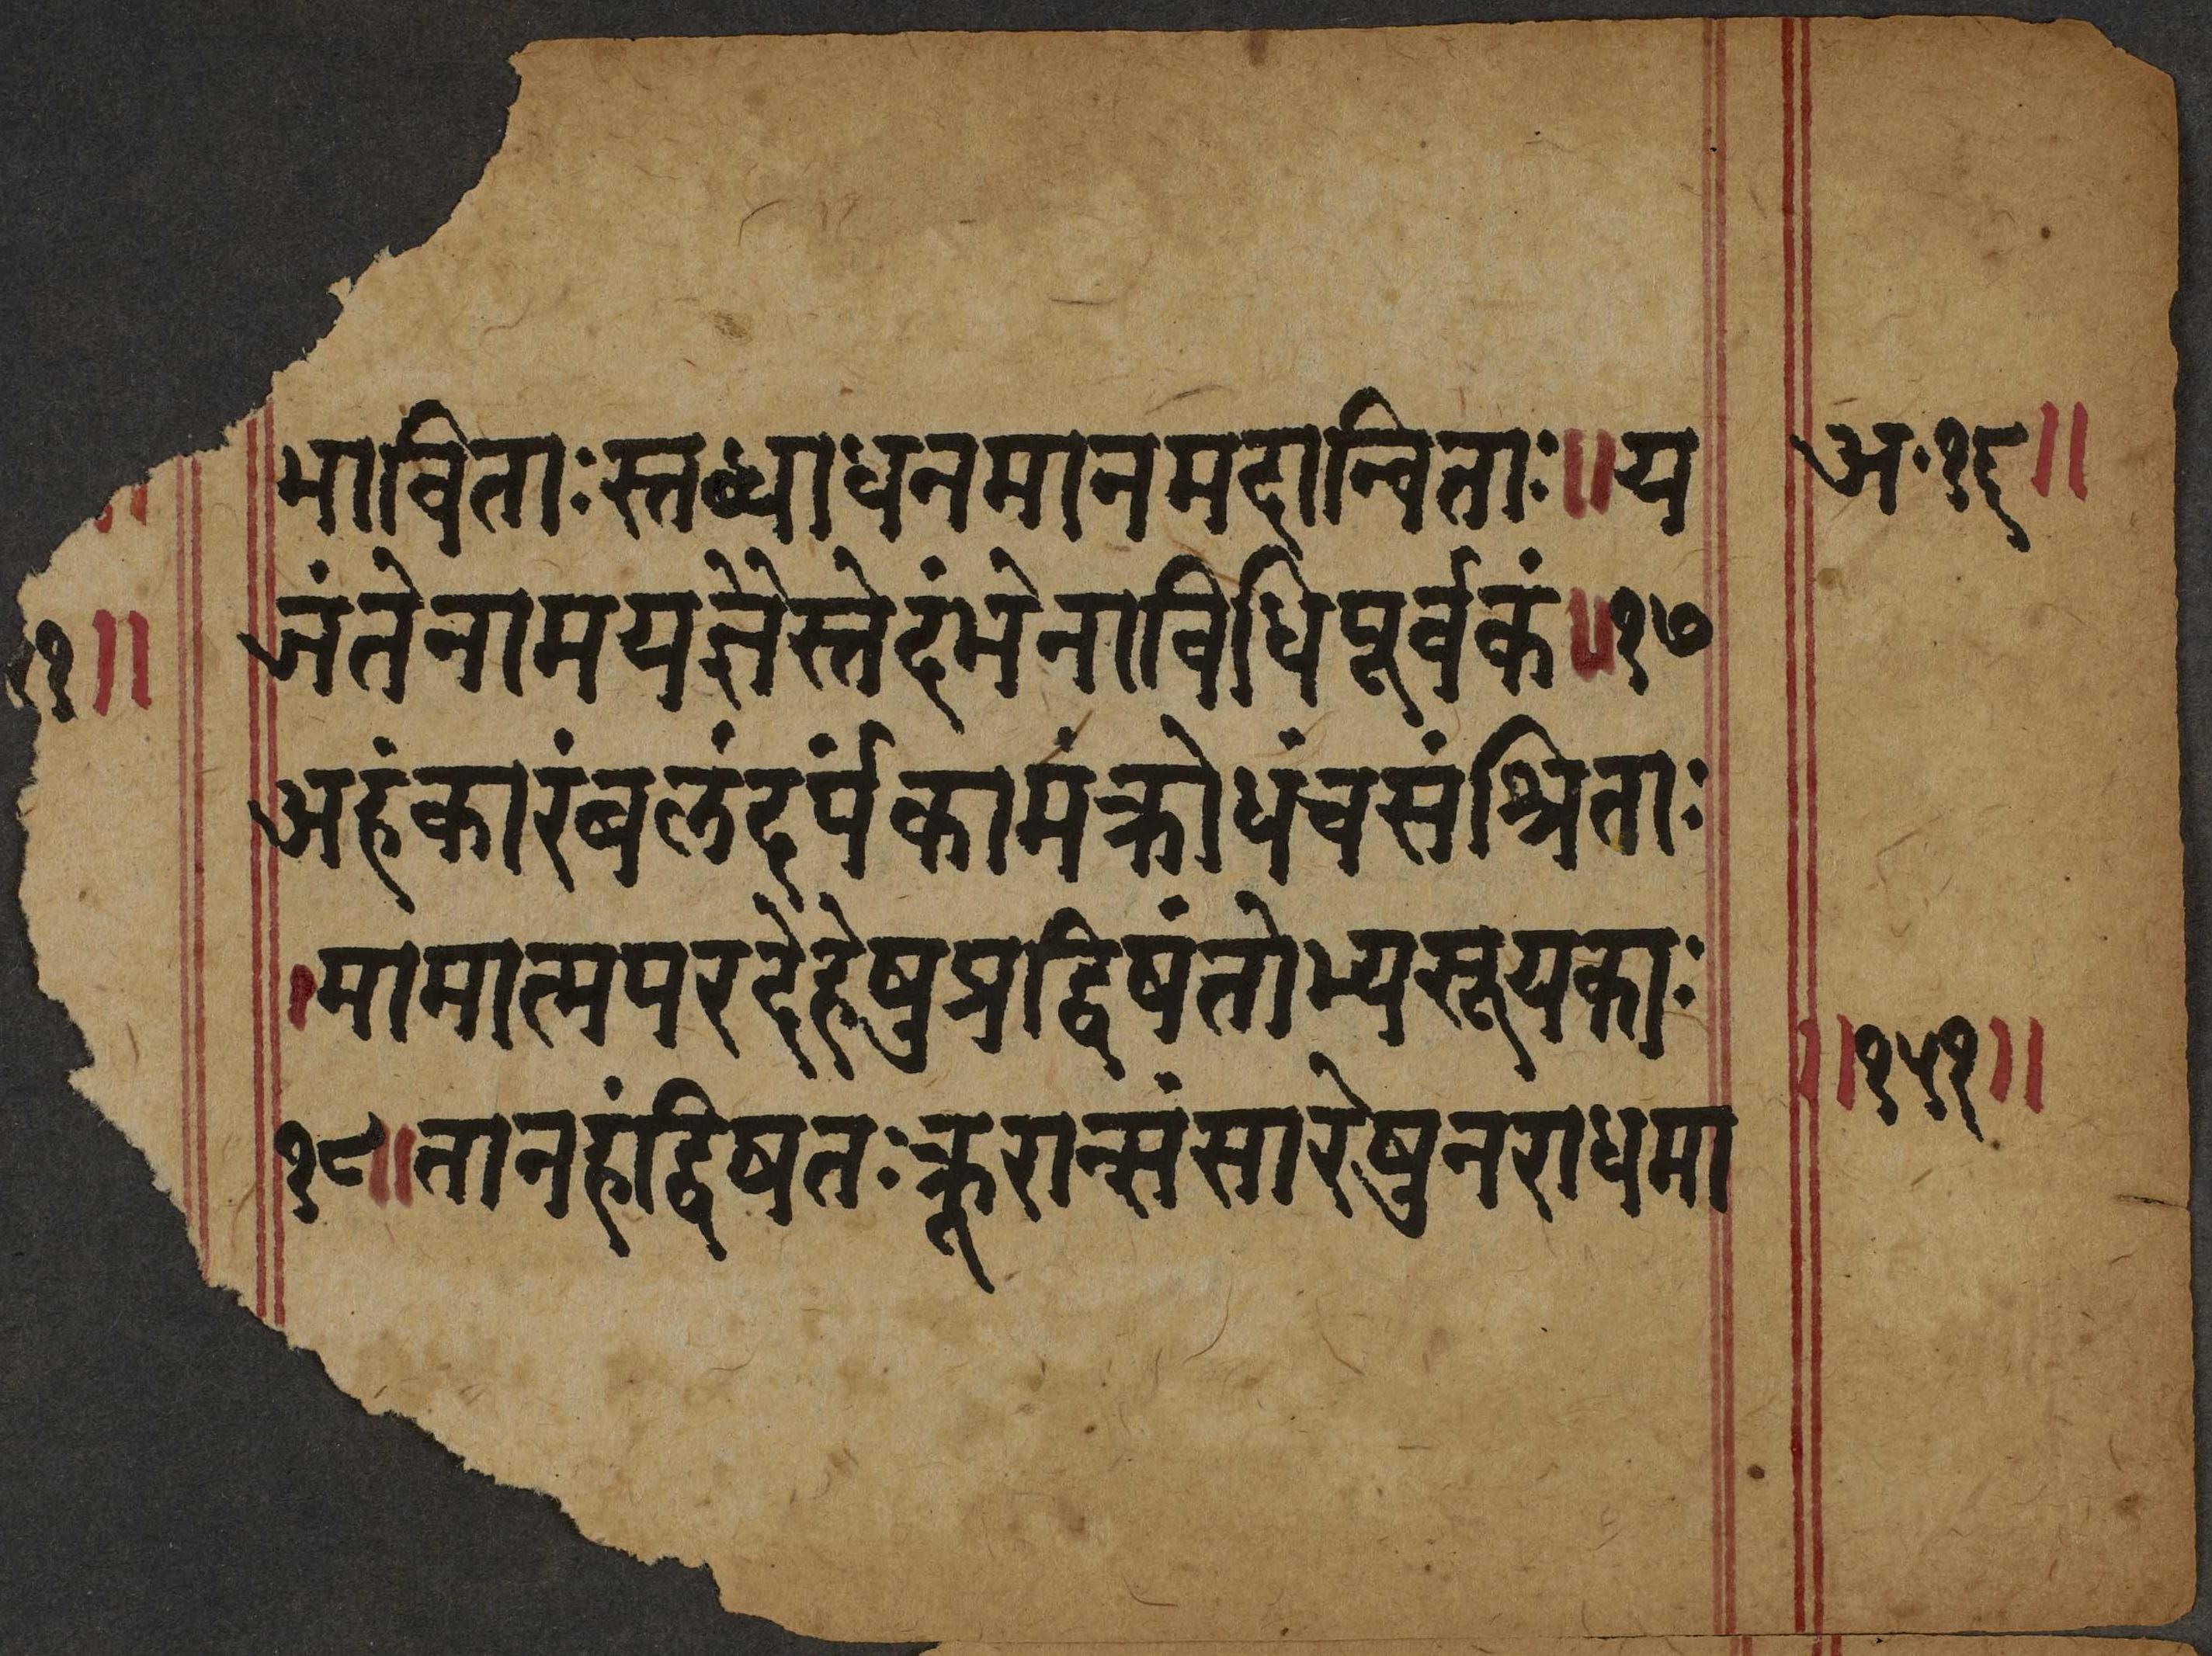 भाविताःस्तब्धाधनमानमदान्विताः॥य
जंतेनामयज्ञैस्तेदंभेनाविधिपूर्वकं॥१७
अहंकारंबलंदर्पंकामंक्रोधंचसंश्रिताः
।मामात्मपरदेहेषुप्रद्विषंतोभ्यसूयकाः
१८॥तानहंद्विषतःक्रूरान्संसारेषुनराधमा
अ॰१६॥
॥१५१॥
१॥